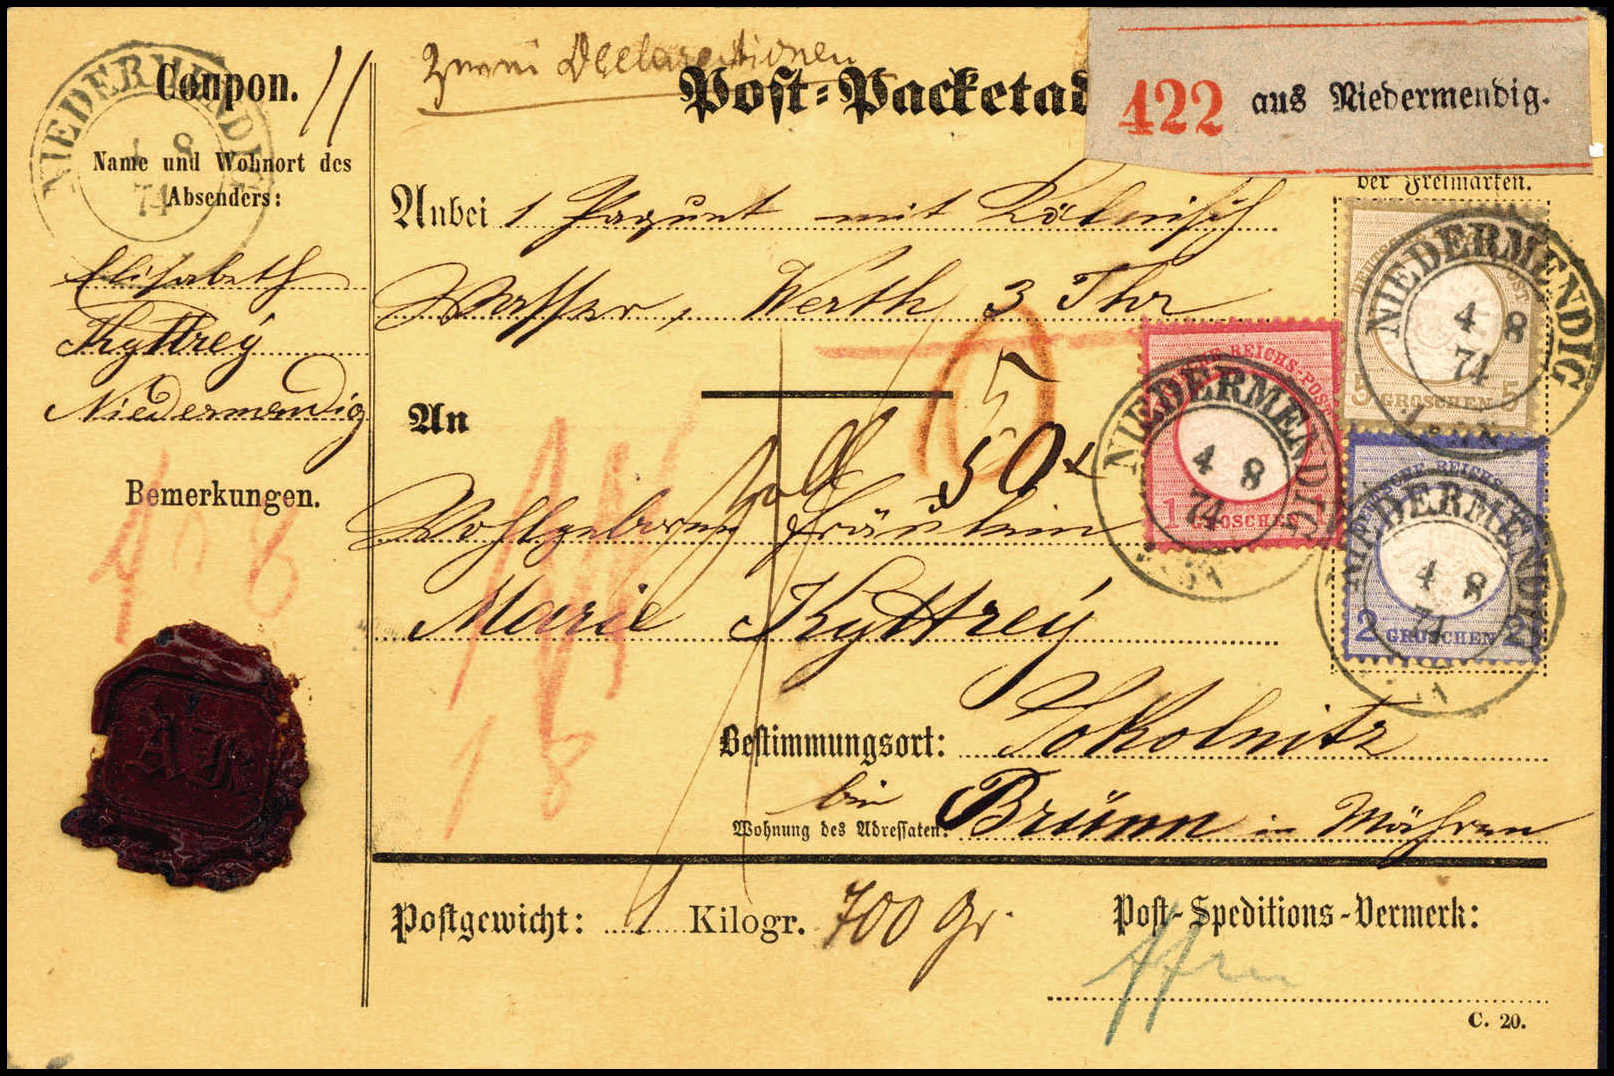 Coupon.
NIEDERMENDIG
4 8
74
Name und Wohnort des
Absenders:
Elisabeth
Kyttrey
Niedermendig
Bemerkungen.
Declarationen
Post-Packetad
422 aus Niedermendig.
der Freimarken.
Anbei 1 Paquet mit Kölnisch
Wasser, Werth 3 Thr
An
50
Wohlgeboren Fräulein
Marie Kyttrey
Bestimmungsort: Sokolnitz
bei Brünn in Mähren
Wohnung des Adressaten:
NIEDERMENDIG
4 8
74
1 GROSCHEN 1
NIEDERMENDIG
4 8
74
5 GROSCHEN 5
NIEDERMENDIG
4 8
74
2 GROSCHEN 2
18
Postgewicht: 1 Kilogr. 700 Gr.
Post-Speditions-Vermerk:
C. 20.